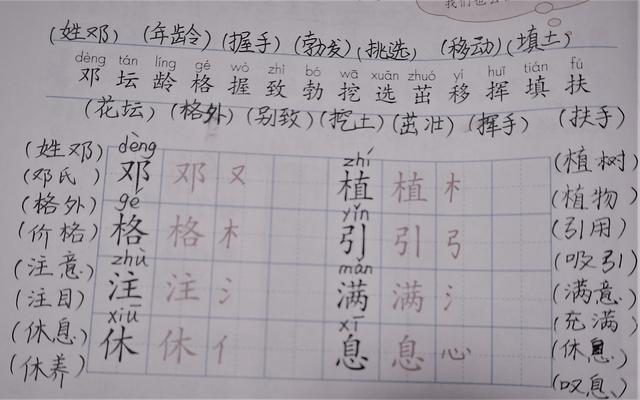 我们也去
(姓邓) (年龄) (握手) (勃发) (挑选) (移动) (填土)
dèng tán líng gé wò zhì bó wā xuǎn zhuó yí huī tián fú
邓 坛 龄 格 握 致 勃 挖 选 茁 移 挥 填 扶
(花坛) (格外) (别致) (挖土) (茁壮) (挥手) (扶手)
(姓邓) dèng zhí (植树)
(邓氏) 邓 邓 又 植 植 木 (植物)
(格外) gé yǐn (引用)
(价格) 格 格 木 引 引 弓 (吸引)
(注意) zhù mǎn (满意)
(注目) 注 注 氵 满 满 氵 (充满)
(休息) xiū xī (休息)
(休养) 休 休 亻 息 息 心 (叹息)